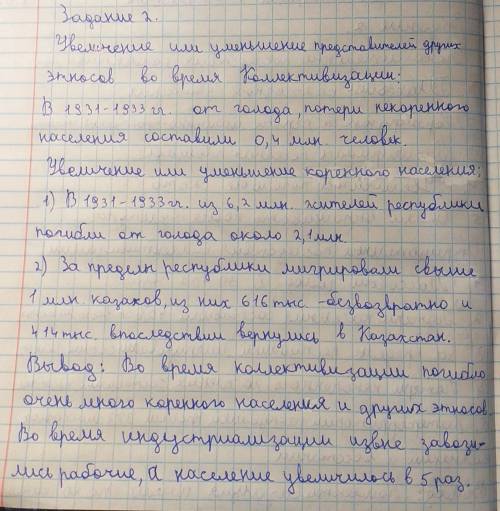 Задание 2.
Увеличение или уменьшение представителей других
этносов во время Коллективизации:
В 1931-1933 гг. от голода, потери некоренного
населения составили 0,4 млн. человек.
Увеличение или уменьшение коренного населения:
1) В 1931-1933 гг. из 6,2 млн. жителей республики
погибли от голода около 2,1 млн.
2) За пределы республики мигрировали свыше
1 млн казахов, из них 616 тыс - безвозвратно и
414 тыс. впоследствии вернулись в Казахстан.
Вывод: Во время коллективизации погибло
очень много коренного населения и других этносов.
Во время индустриализации извне завози-
лись рабочие, а население увеличилось в 5 раз.